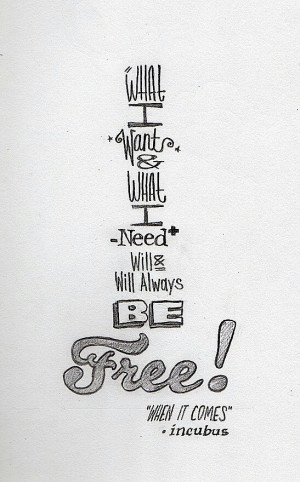 "WHAt
I
Want
&
WHAt
I
-Need+
Will &
Will Always
BE
Free!
"WHEN IT COMES"
• incubus